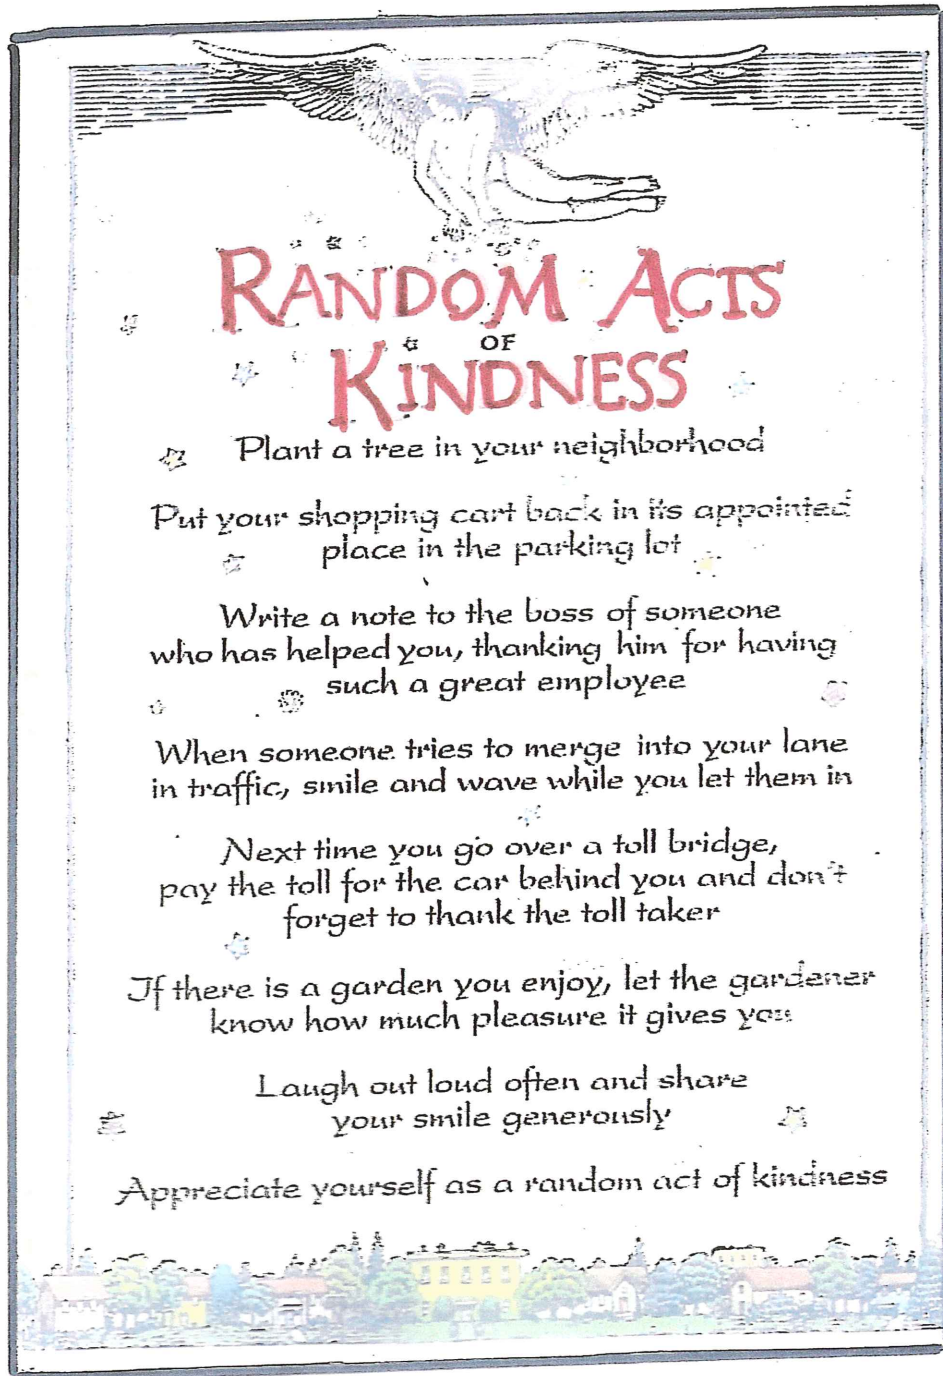 RANDOM ACTS
OF
KINDNESS
Plant a tree in your neighborhood
Put your shopping cart back in its appointed
place in the parking lot
Write a note to the boss of someone
who has helped you, thanking him for having
such a great employee
When someone tries to merge into your lane
in traffic, smile and wave while you let them in
Next time you go over a toll bridge,
pay the toll for the car behind you and don't
forget to thank the toll taker
If there is a garden you enjoy, let the gardener
know how much pleasure it gives you
Laugh out loud often and share
your smile generously
Appreciate yourself as a random act of kindness